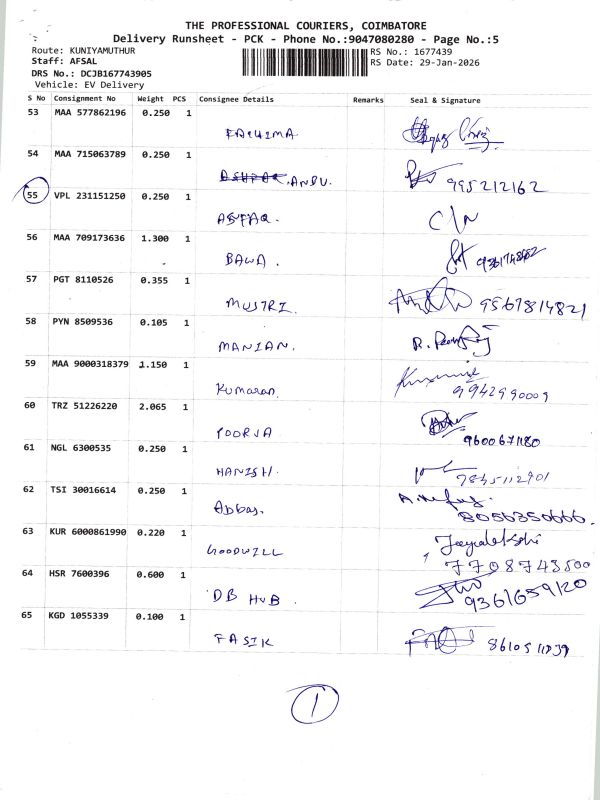 THE PROFESSIONAL COURIERS, COIMBATORE
Delivery Runsheet - PCK - Phone No.:9047080280 - Page No.:5
Route: KUNIYAMUTHUR RS No.: 1677439
Staff: AFSAL RS Date: 29-Jan-2026
DRS No.: DCJB167743905
Vehicle: EV Delivery
S No Consignment No Weight PCS Consignee Details Remarks Seal & Signature
53 MAA 577862196 0.250 1
FATHIMA
54 MAA 715063789 0.250 1
ANDU. 995212162
55 VPL 231151250 0.250 1
ASFAQ. C/N
56 MAA 709173636 1.300 1
BAWA.
57 PGT 8110526 0.355 1
MUSTRI. 9567814821
58 PYN 8509536 0.105 1
MANIAN. R.
59 MAA 9000318379 1.150 1
Kumaran. 9942990009
60 TRZ 51226220 2.065 1
POORJA 9600671180
61 NGL 6300535 0.250 1
HANISH.
62 TSI 30016614 0.250 1
Abbas. 8056350666.
63 KUR 6000861990 0.220 1
GOODWILL 7708743500
64 HSR 7600396 0.600 1
DB HUB. 9361659120
65 KGD 1055339 0.100 1
FASIK
1